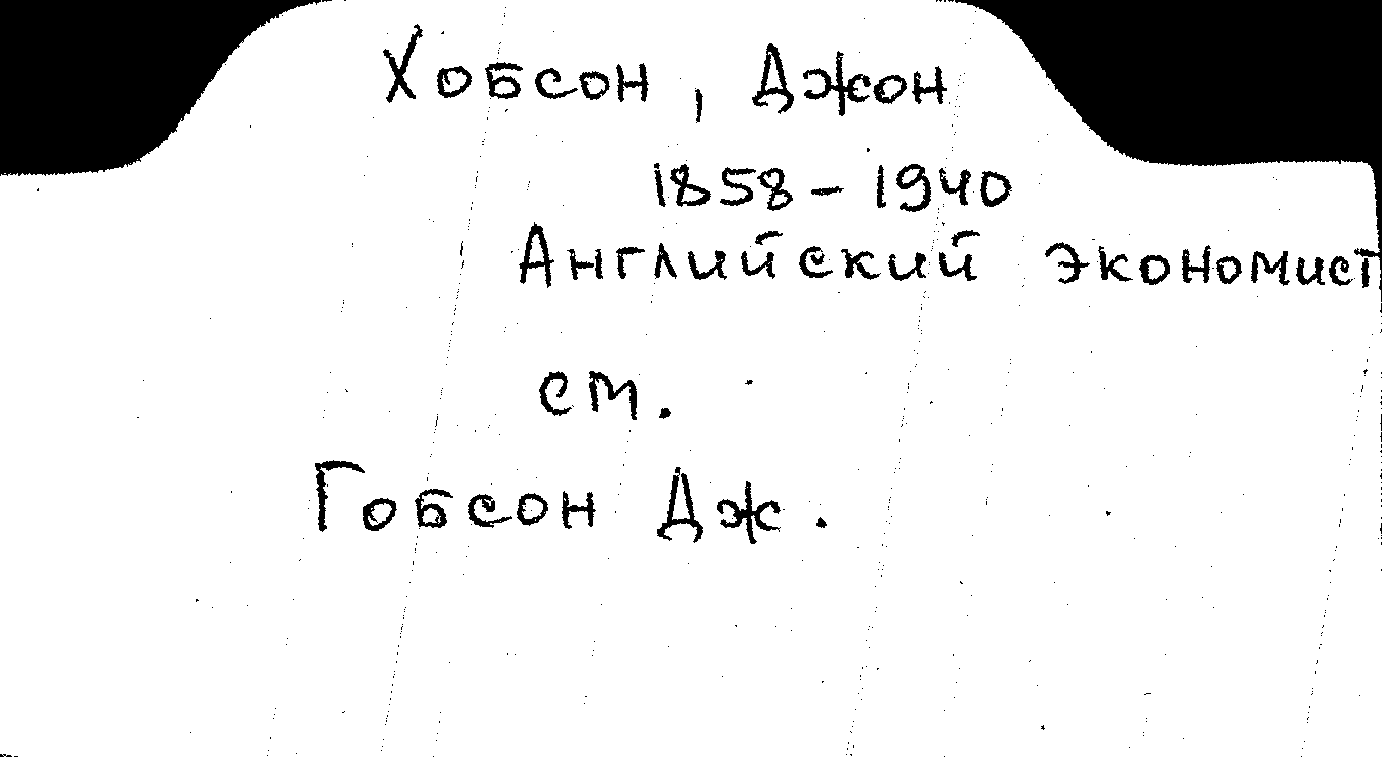 Хобсон, Джон
1858 - 1940
Английский экономист
см.
Гобсон Дж.